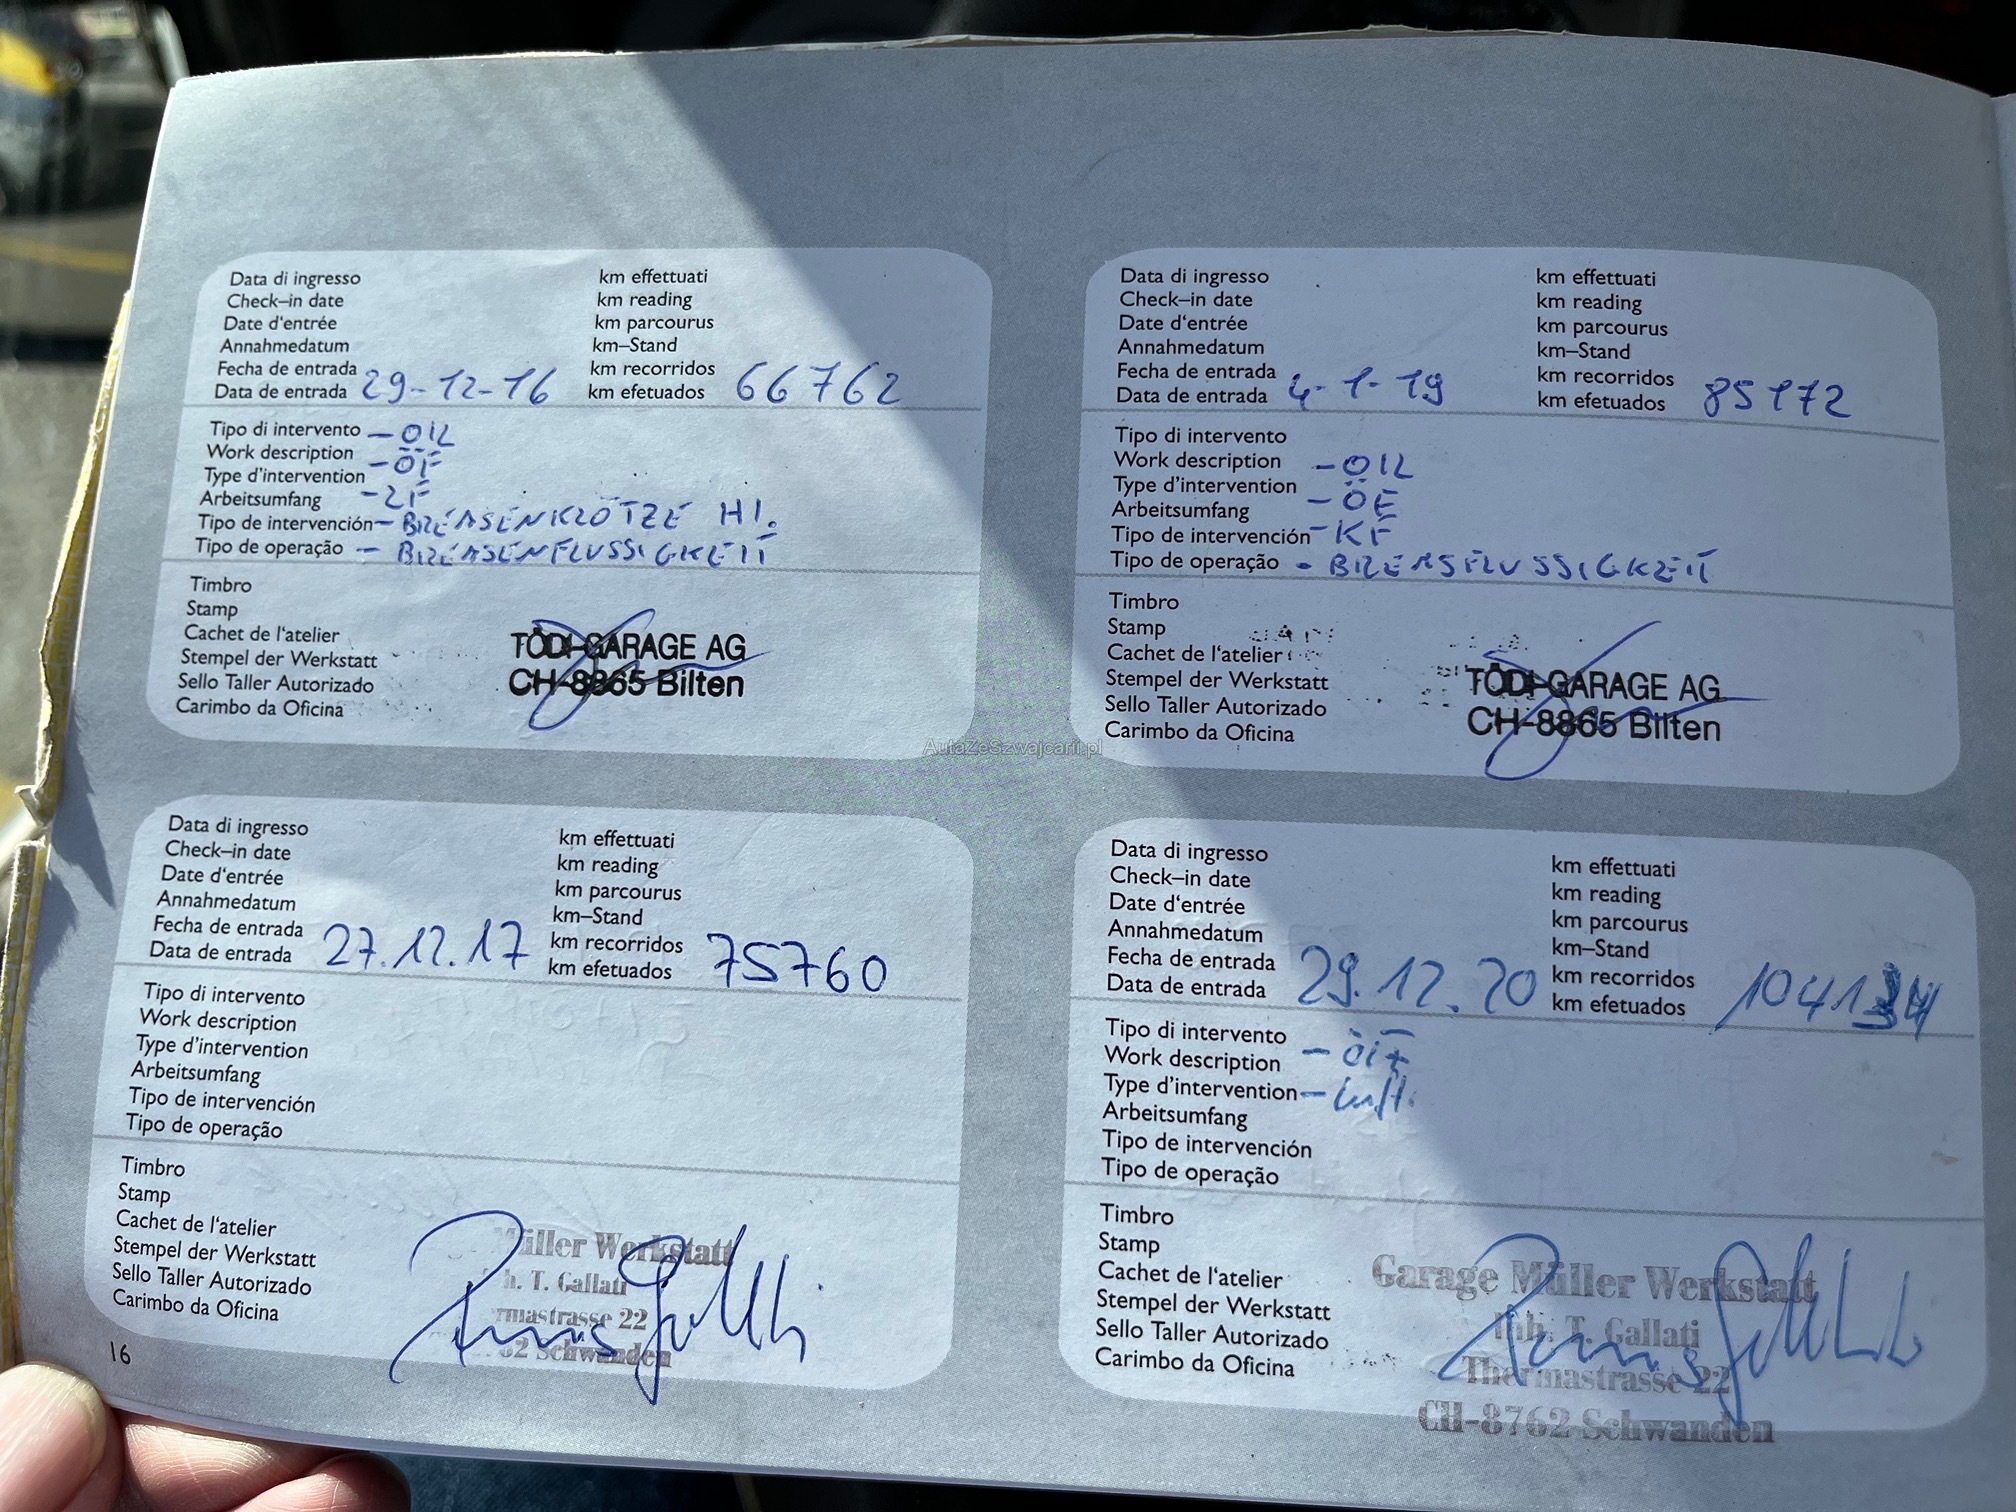 Data di ingresso
Check–in date
Date d'entrée
Annahmedatum
Fecha de entrada
Data de entrada 29-12-16
km effettuati
km reading
km parcourus
km–Stand
km recorridos
km efetuados 66762
Tipo di intervento – OIL
Work description – ÖF
Type d'intervention
Arbeitsumfang
Tipo de intervención – BREMSENKLÖTZE HI.
Tipo de operação – BREMSENFLUSSIGKEIT
Timbro
Stamp
Cachet de l'atelier
Stempel der Werkstatt
Sello Taller Autorizado
Carimbo da Oficina
TÖDI-GARAGE AG
CH-8865 Bilten
Data di ingresso
Check–in date
Date d'entrée
Annahmedatum
Fecha de entrada
Data de entrada 4-1-19
km effettuati
km reading
km parcourus
km–Stand
km recorridos
km efetuados 85172
Tipo di intervento
Work description – OIL
Type d'intervention
Arbeitsumfang
Tipo de intervención – KF
Tipo de operação – BREMSFLUSSIGKEIT
Timbro
Stamp
Cachet de l'atelier
Stempel der Werkstatt
Sello Taller Autorizado
Carimbo da Oficina
TÖDI-GARAGE AG
CH-8865 Bilten
AutaZeSzwajcarii.pl
Data di ingresso
Check–in date
Date d'entrée
Annahmedatum
Fecha de entrada
Data de entrada 27.12.17
km effettuati
km reading
km parcourus
km–Stand
km recorridos
km efetuados 75760
Tipo di intervento
Work description
Type d'intervention
Arbeitsumfang
Tipo de intervención
Tipo de operação
Timbro
Stamp
Cachet de l'atelier
Stempel der Werkstatt
Sello Taller Autorizado
Carimbo da Oficina
Müller Werkstatt
T. Gallati
22
Schwanden
Data di ingresso
Check–in date
Date d'entrée
Annahmedatum
Fecha de entrada
Data de entrada 29.12.20
km effettuati
km reading
km parcourus
km–Stand
km recorridos
km efetuados
Tipo di intervento
Work description
Type d'intervention
Arbeitsumfang
Tipo de intervención
Tipo de operação
Timbro
Stamp
Cachet de l'atelier
Stempel der Werkstatt
Sello Taller Autorizado
Carimbo da Oficina
Garage Müller Werkstatt
Inh. T. Gallati
Thermastrasse 22
CH-8762 Schwanden
16